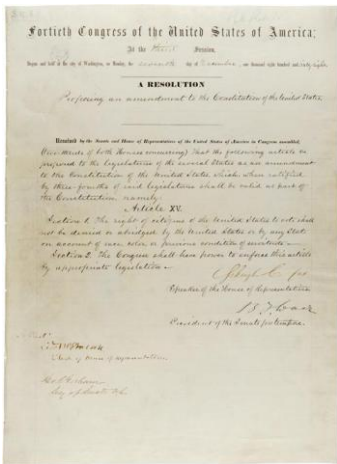 Fortieth Congress of the United States of America;
At the third Session,
Begun and held at the city of Washington, on Monday, the seventh day of December, one thousand eight hundred and sixty-eight.
A RESOLUTION
Proposing an amendment to the Constitution of the United States.
Resolved by the Senate and House of Representatives of the United States of America in Congress assembled,
(two-thirds of both Houses concurring) That the following article be
proposed to the legislatures of the several States as an amendment
to the Constitution of the United States which, when ratified
by three-fourths of said legislatures shall be valid as part of
the Constitution, namely:
Article XV.
Section 1. The right of citizens of the United States to vote shall
not be denied or abridged by the United States or by any State
on account of race, color, or previous condition of servitude.
Section 2. The Congress shall have power to enforce this article
by appropriate legislation.
Speaker of the House of Representatives.
President of the Senate pro tempore.
Attest
Clerk of House of Representatives